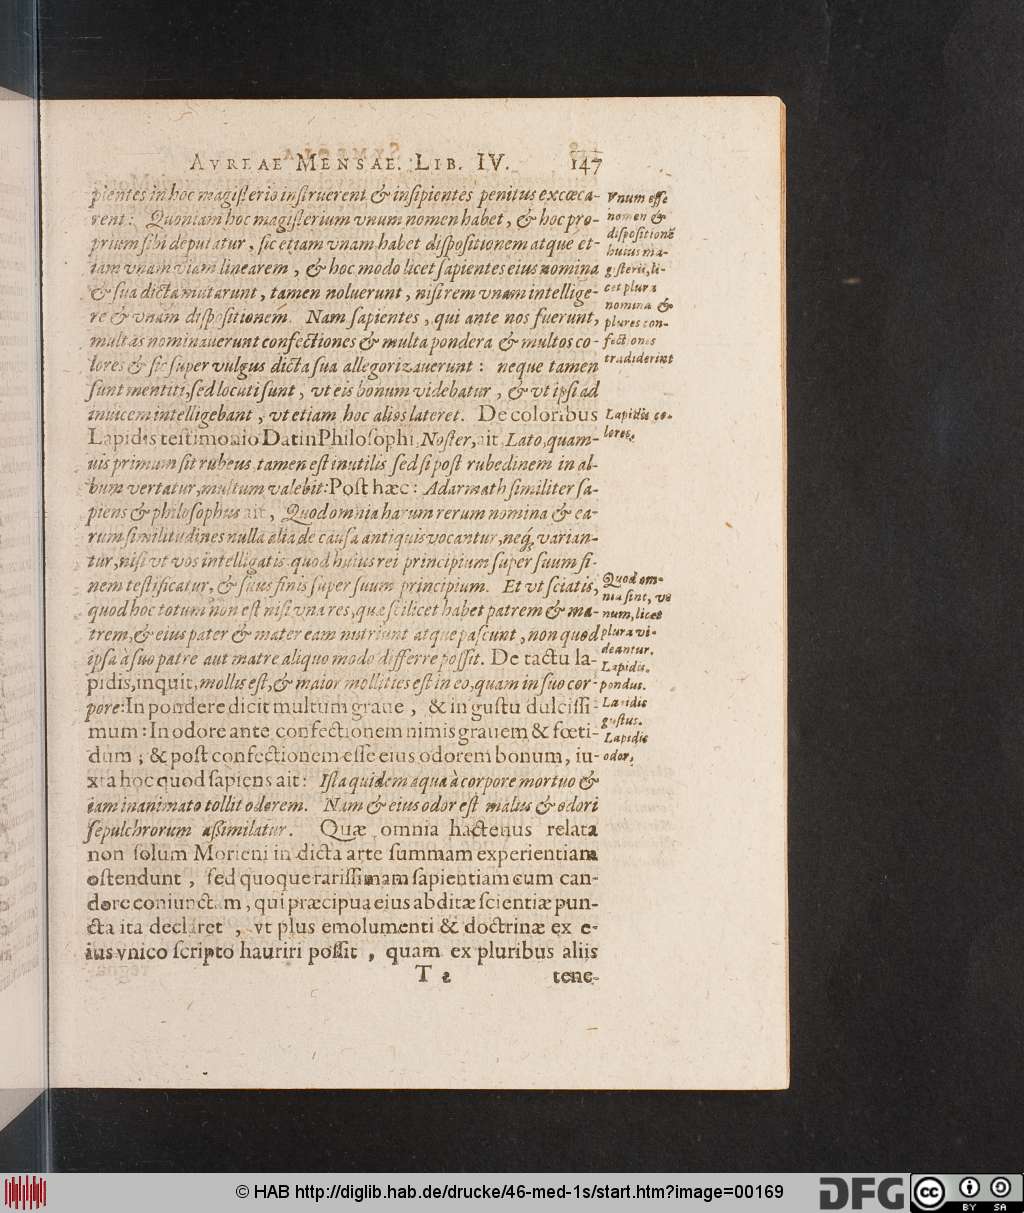 AVREAE MENSAE. LIB. IV. 147
pientes in hoc magiſterio inſtruerent & inſipientes penitus excœca-
rent: Quoniam hoc magiſterium vnum nomen habet, & hoc pro-
prium ſibi deputatur, ſic etiam vnam habet diſpoſitionem atque et-
iam vnam viam linearem, & hoc modo licet ſapientes eius nomina
& ſua dicta mutarunt, tamen noluerunt, niſi rem vnam intellige-
re & vnam diſpoſitionem. Nam ſapientes, qui ante nos fuerunt,
multas nominauerunt confectiones & multa pondera & multos co-
lores & ſic ſuper vulgus dicta ſua allegorizauerunt: neque tamen
ſunt mentiti, ſed locuti ſunt, vt eis bonum videbatur, & vt ipſi ad
inuicem intelligebant, vt etiam hoc alios lateret. De coloribus
Lapidis teſtimonio Datin Philoſophi, Noſter, ait, Lato, quam-
uis primum ſit rubeus tamen eſt inutilis ſed ſi poſt rubedinem in al-
bum vertatur, multum valebit: Poſt hæc: Adarmath ſimiliter ſa-
piens & philoſophus ait, Quod omnia harum rerum nomina & ea-
rum ſimilitudines nulla alia de cauſa antiquis vocantur, neq; varian-
tur, niſi vt vos intelligatis quod huius rei principium ſuper ſuum fi-
nem teſtificatur, & ſuus finis ſuper ſuum principium. Et vt ſciatis,
quod hoc totum non eſt niſi vna res, quæ ſcilicet habet patrem & ma-
trem, & eius pater & mater eam nutriunt atque paſcunt, non quod
ipſa à ſuo patre aut matre aliquo modo differre poſſit. De tactu la-
pidis, inquit, mollis eſt, & maior mollities eſt in eo, quam in ſuo cor-
pore: In pondere dicit multum graue, & in guſtu dulciſſi-
mum: In odore ante confectionem nimis grauem & fœti-
dum; & poſt confectionem eſſe eius odorem bonum, iu-
xta hoc quod ſapiens ait: Iſta quidem aqua à corpore mortuo &
iam inanimato tollit odorem. Nam & eius odor eſt malus & odori
ſepulchrorum aſſimilatur. Quæ omnia hactenus relata
non ſolum Morieni in dicta arte ſummam experientiam
oſtendunt, ſed quoque rariſſimam ſapientiam cum can-
dore coniunctam, qui præcipua eius abditæ ſcientiæ pun-
cta ita declaret, vt plus emolumenti & doctrinæ ex e-
ius vnico ſcripto hauriri poſſit, quam ex pluribus aliis
T 2 tene-
Vnum eſſe
nomen &
diſpoſitionẽ
huius ma-
giſterii, li-
cet plura
nomina &
plures con-
fectiones
tradiderint
Lapidis co-
lores.
Quod om-
nia ſint, vs
num, licet
plura vi-
deantur.
Lapidis
pondus.
Lapidis
guſtus.
Lapidis
odor.
© HAB http://diglib.hab.de/drucke/46-med-1s/start.htm?image=00169
DFG
cc BY SA